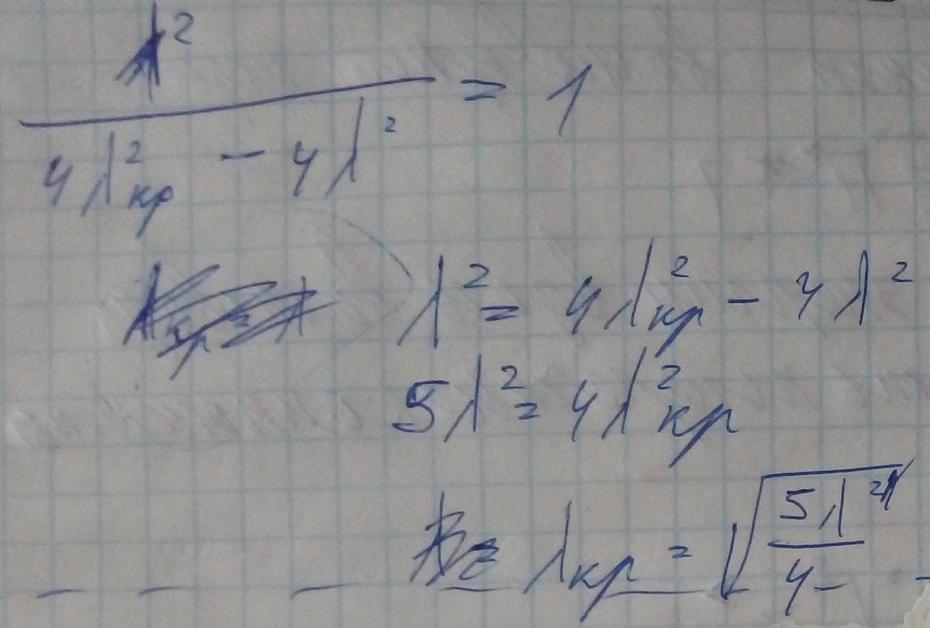 λ² / (4λ²кр − 4λ²) = 1
λ² = 4λ²кр − 4λ²
5λ² = 4λ²кр
λкр = √(5λ²/4)